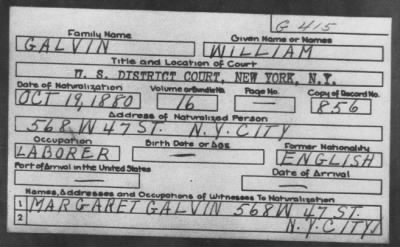 G 415
Family Name Given Name or Names
GALVIN WILLIAM
Title and Location of Court
U. S. DISTRICT COURT, NEW YORK, N.Y.
Date of Naturalization Volume or Bundle No. Page No. Copy of Record No.
OCT 19, 1880 16 — 856
Address of Naturalized Person
568 W 47 ST. N.Y. CITY
Occupation Birth Date or Age Former Nationality
LABORER — ENGLISH
Port of Arrival in the United States Date of Arrival
— —
Names, Addresses and Occupations of Witnesses To Naturalization
1 MARGARET GALVIN 568 W 47 ST.
2 N.Y. CITY